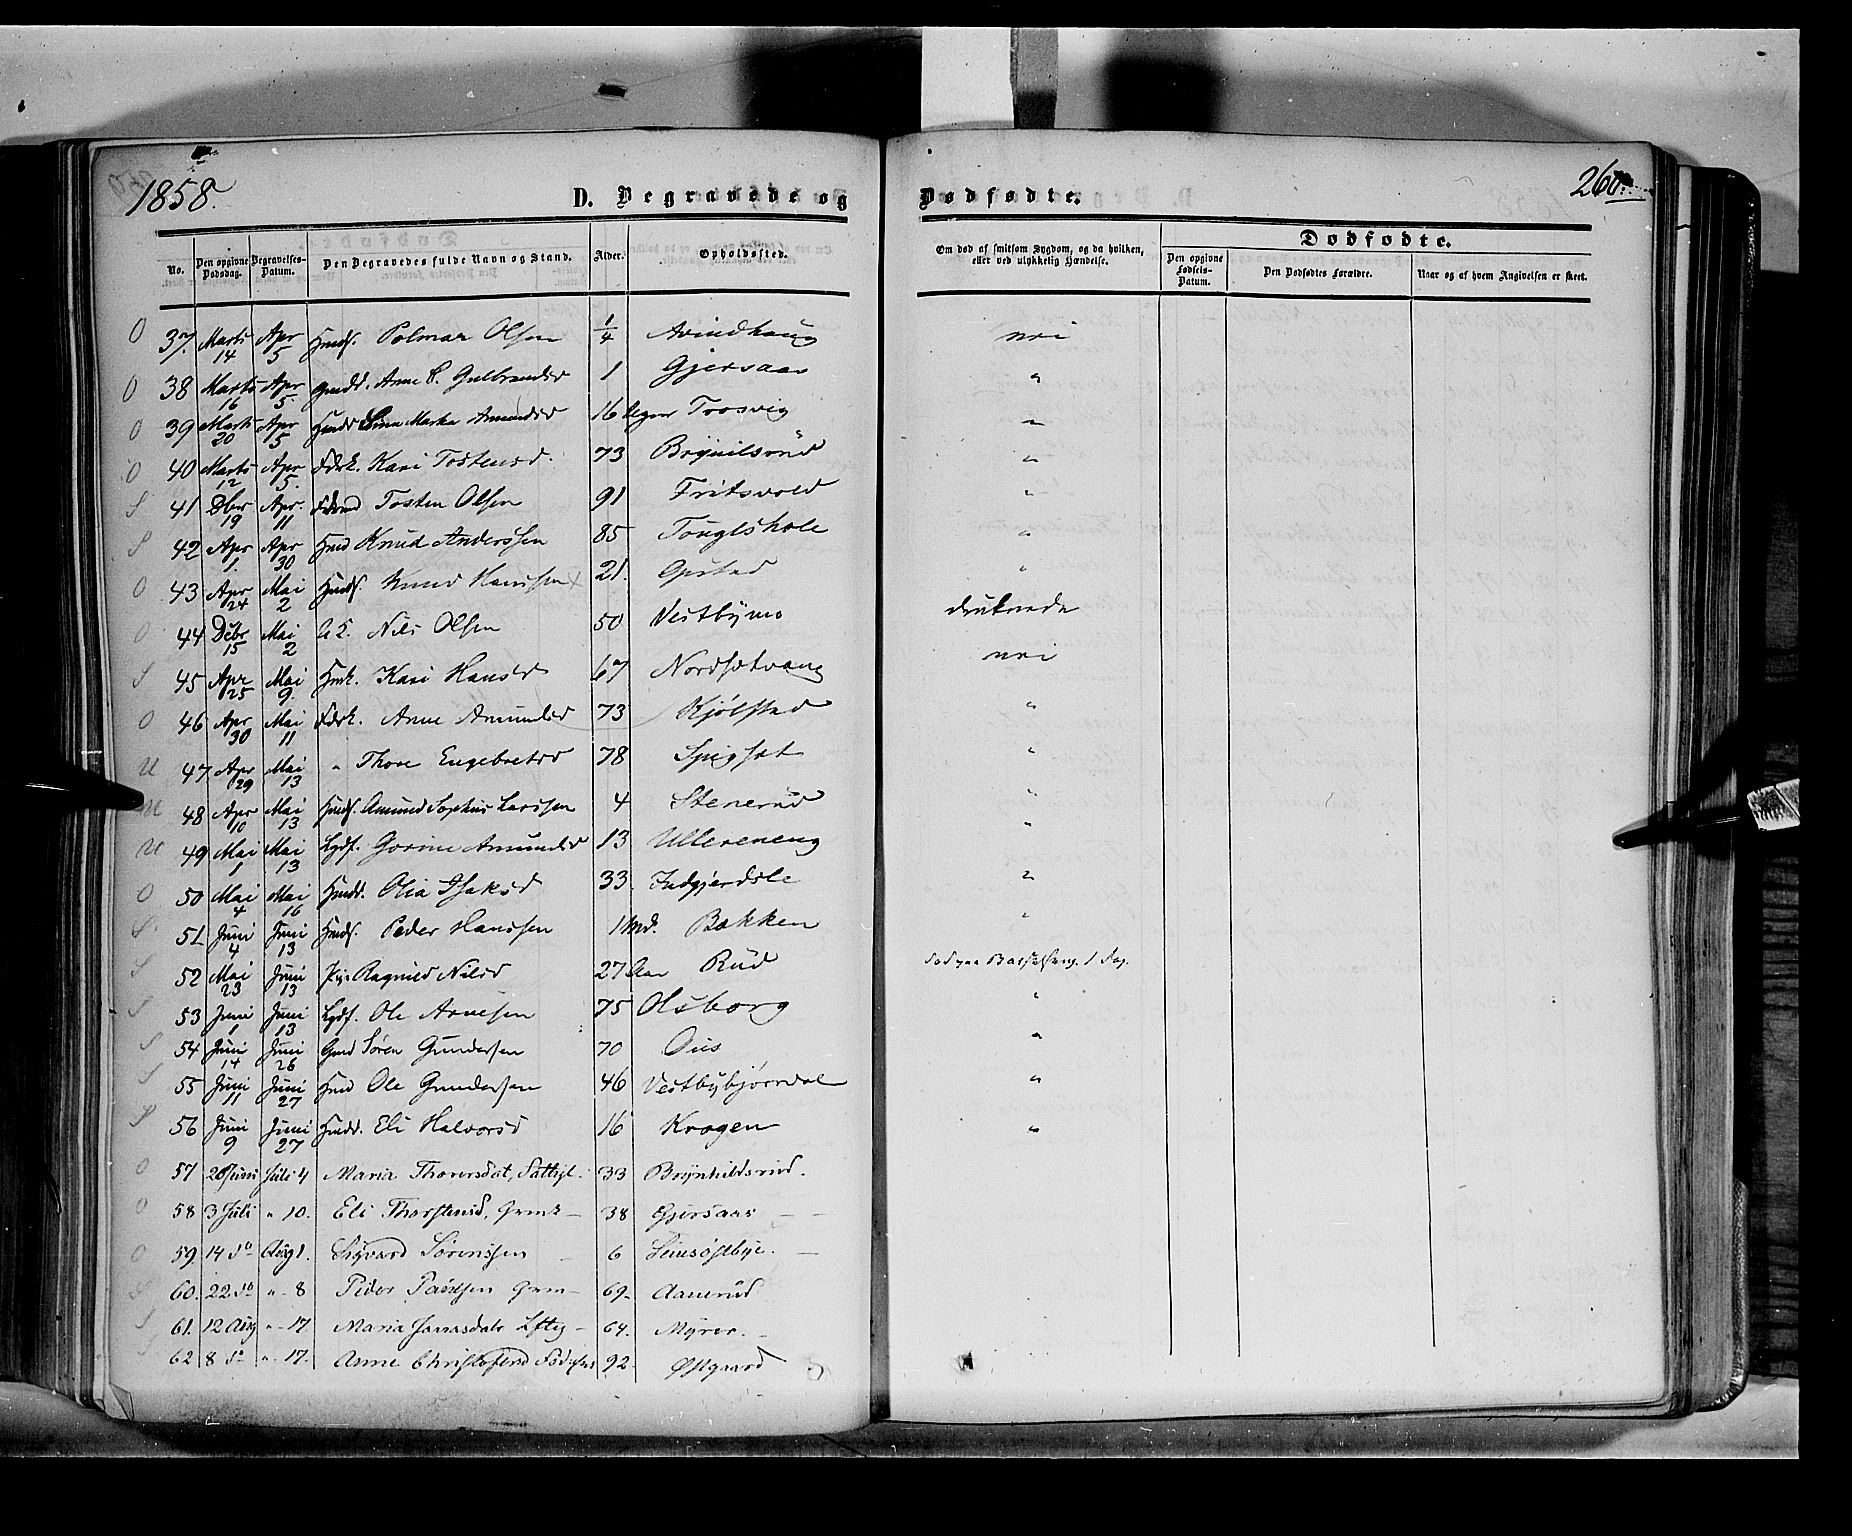 1858.
D. Begravede og Dødfødte.
260
No. Den opgivne Dødsdag. Begravelses-Datum. Den Begravedes fulde Navn og Stand. Alder. Opholdssted. Om død af smitsom Sygdom, og da hvilken, eller ved ulykkelig Hændelse. Dødfødte. Den opgivne Fødsels-Datum. Den Dødfødtes Forældre. Naar og af hvem Angivelsen er skeet.
O 37. Marts 14 Apr 5 Hmds. Polmar Olsen 1/4 Avindhaug nei
O 38 Marts 16 Apr 5. Gmdd. Anne C. Gulbrandsd 1 Gjersaas "
O 39 Marts 20 Apr 5 Hmdd Lina Marka Amundsd 16 Uger Trosvig "
O 40 Marts 12 Apr 5. Fdrk. Kari Tostensd. 73 Brynilsrud "
S 41 Dbr 19 Apr. 11 Tosten Olsen 91 Fritsvold "
S 42 Apr 1. Apr 30 Hmd Knud Anderssen 85 "
O 43 Apr 24 Mai 2 Hmds. Knud Hanssen 21. Opstad "
O 44 Debr 15 Mai 2 Nils Olsen 50 Vestbymo druknede
S 45 Apr 25 Mai 9. Hmk. Kari Hansd 67 Nordsætvang nei
O 46 Apr 30 Mai 11 Fdrk. Anne Amundsd 73 Kjølstad "
U 47 Apr 29 Mai 13 " Thore Engebretsd 78 Spigset "
U 48 Apr 10 Mai 13 Hmds. Amund Sophus Larssen 4 Stenerud "
U 49 Mai 1 Mai 13 Lgdf. Gorine Amundsd 13 Ullereneng "
O 50 Mai 4 Mai 16 Hmdd. Olia Isaksd 33. Indgjerdsle "
S 51 Juni 4 Juni 13 Hmds. Peder Hanssen 1 Md. Bækken "
S 52 Mai 23 Juni 13 Pig Ragnild Nilsd 27 Aar Rud død paa Barselseng. 1 Dag.
S 53 Juni 1 Juni 13 Lgdf. Ole Arnesen 75 Olsborg "
S 54 Juni 14 Juni 26 Gmd Søren Gundersen 70 Ous "
S 55 Juni 11 Juni 27 Hmd Ole Gundersen 46 Vestbybjørndal "
S 56 Juni 9 Juni 27 Hmdd. Eli Halvorsd 16 Kragen "
O 57 26 Juni Juli 4 Maria Thorersdat, Fattigl. 33 Brynhildsrud.
O 58 3 Juli " 10. Eli Thorstensd, Gmk – 38 Gjersaas – –
O 59. 14 do Aug 1. Sigvard Sørenssen – 6 Leinsøstbye. –
S 60. 22 do " - 8 Peder Paulsen Gmn – 69. Aanerud
S 61. 12 Aug " - 17 Maria Jonasdatr Lftig – 64. Myrer. –
S 62 8 do " - 17. Anne Christofersd 92 Østgaard